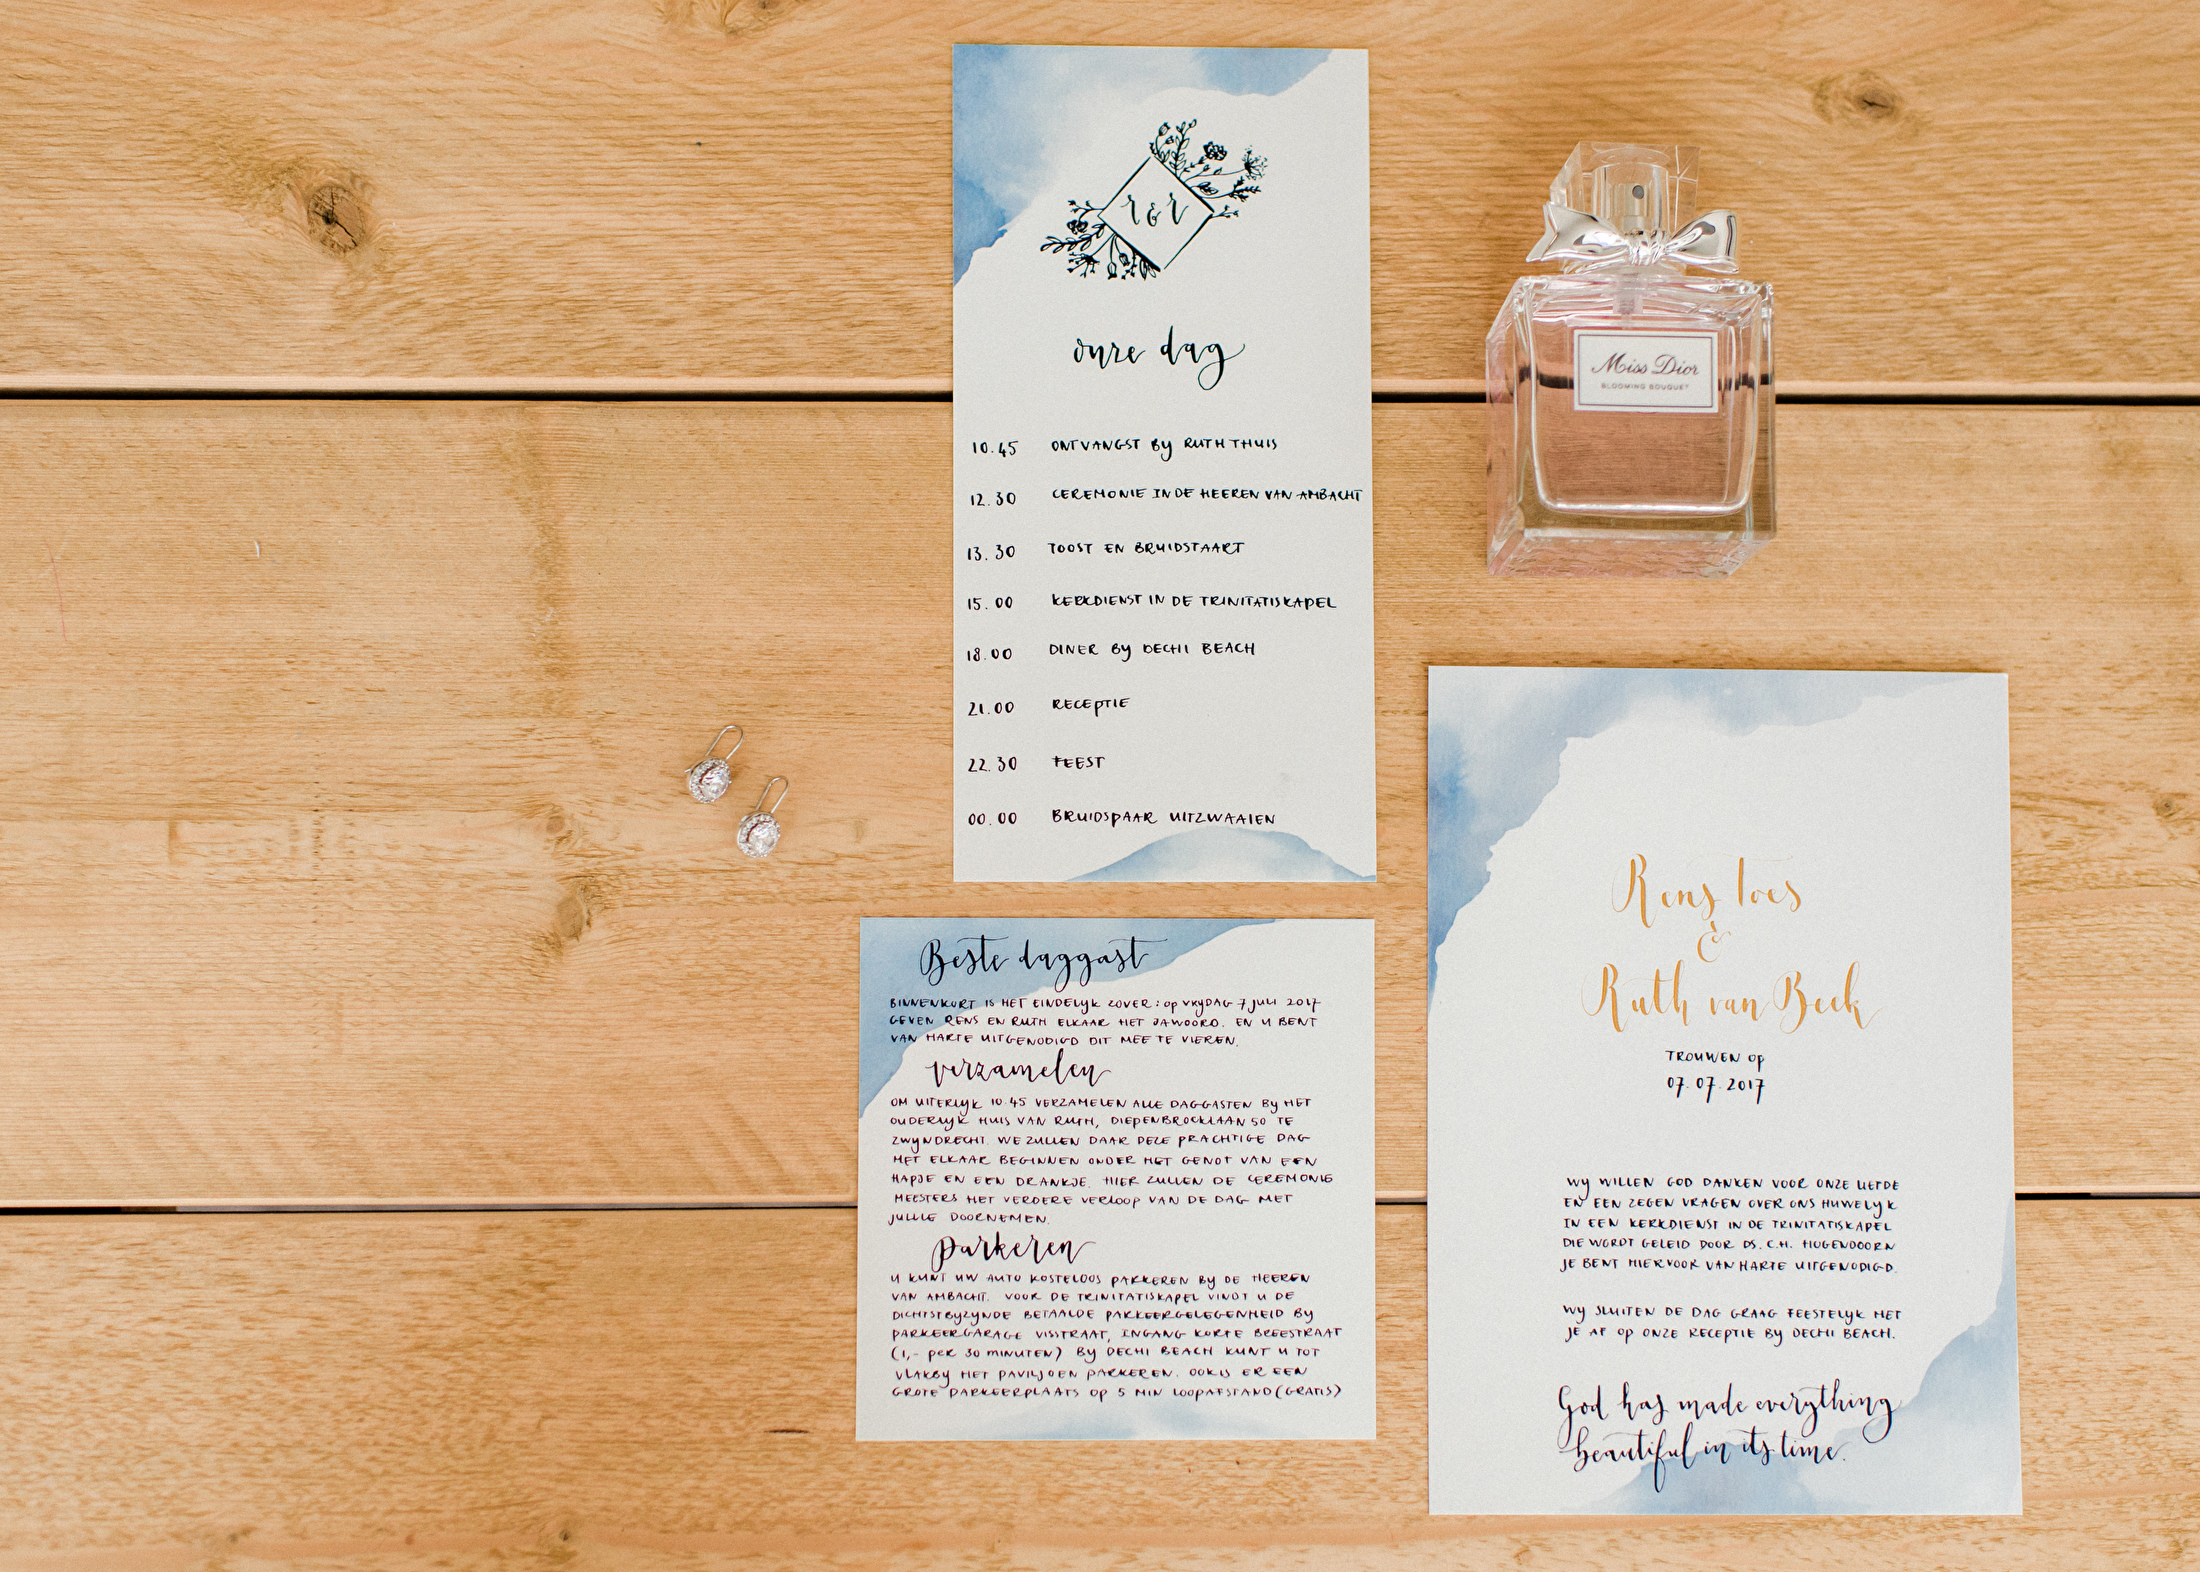 r & r
onze dag
10.45 ONTVANGST BY RUTH THUIS
12.30 CEREMONIE IN DE HEEREN VAN AMBACHT
13.30 TOOST EN BRUIDSTAART
15.00 KERKDIENST IN DE TRINITATISKAPEL
18.00 DINER BY DECHI BEACH
21.00 RECEPTIE
22.30 FEEST
00.00 BRUIDSPAAR UITZWAAIEN
Miss Dior
BLOOMING BOUQUET
Beste daggast
BINNENKORT IS HET EINDELYK ZOVER: OP VRYDAG 7 JULI 2017
GEVEN RENS EN RUTH ELKAAR HET JAWOORD. EN U BENT
VAN HARTE UITGENODIGD DIT MEE TE VIEREN.
verzamelen
OM UITERLYK 10.45 VERZAMELEN ALLE DAGGASTEN BY HET
OUDERLYK HUIS VAN RUTH, DIEPENBROCKLAAN 50 TE
ZWYNDRECHT. WE ZULLEN DAAR DEZE PRACHTIGE DAG
MET ELKAAR BEGINNEN ONDER HET GENOT VAN EEN
HAPJE EN EEN DRANKJE. HIER ZULLEN DE CEREMONIE
MEESTERS HET VERDERE VERLOOP VAN DE DAG MET
JULLIE DOORNEMEN.
parkeren
U KUNT UW AUTO KOSTELOOS PARKEREN BY DE HEEREN
VAN AMBACHT. VOOR DE TRINITATISKAPEL VINDT U DE
DICHTSTBYZYNDE BETAALDE PARKEERGELEGENHEID BY
PARKEERGARAGE VISSTRAAT, INGANG KORTE BREESTRAAT
(1,- PER 30 MINUTEN) BY DECHI BEACH KUNT U TOT
VLAKBY HET PAVILJOEN PARKEREN. OOK IS ER EEN
GROTE PARKEERPLAATS OP 5 MIN LOOPAFSTAND (GRATIS)
Rens Toes
&
Ruth van Beek
TROUWEN OP
07.07.2017
WY WILLEN GOD DANKEN VOOR ONZE LIEFDE
EN EEN ZEGEN VRAGEN OVER ONS HUWELYK
IN EEN KERKDIENST IN DE TRINITATISKAPEL
DIE WORDT GELEID DOOR DS. C.H. HOGENDOORN
JE BENT HIERVOOR VAN HARTE UITGENODIGD.
WY SLUITEN DE DAG GRAAG FEESTELYK MET
JE AF OP ONZE RECEPTIE BY DECHI BEACH.
God has made everything
beautiful in its time.